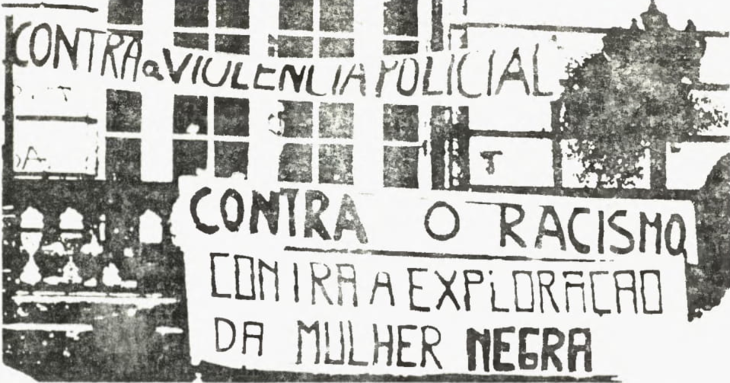 CONTRA a VIOLENCIA POLICIAL
CONTRA O RACISMO
CONTRA A EXPLORAÇAO
DA MULHER NEGRA